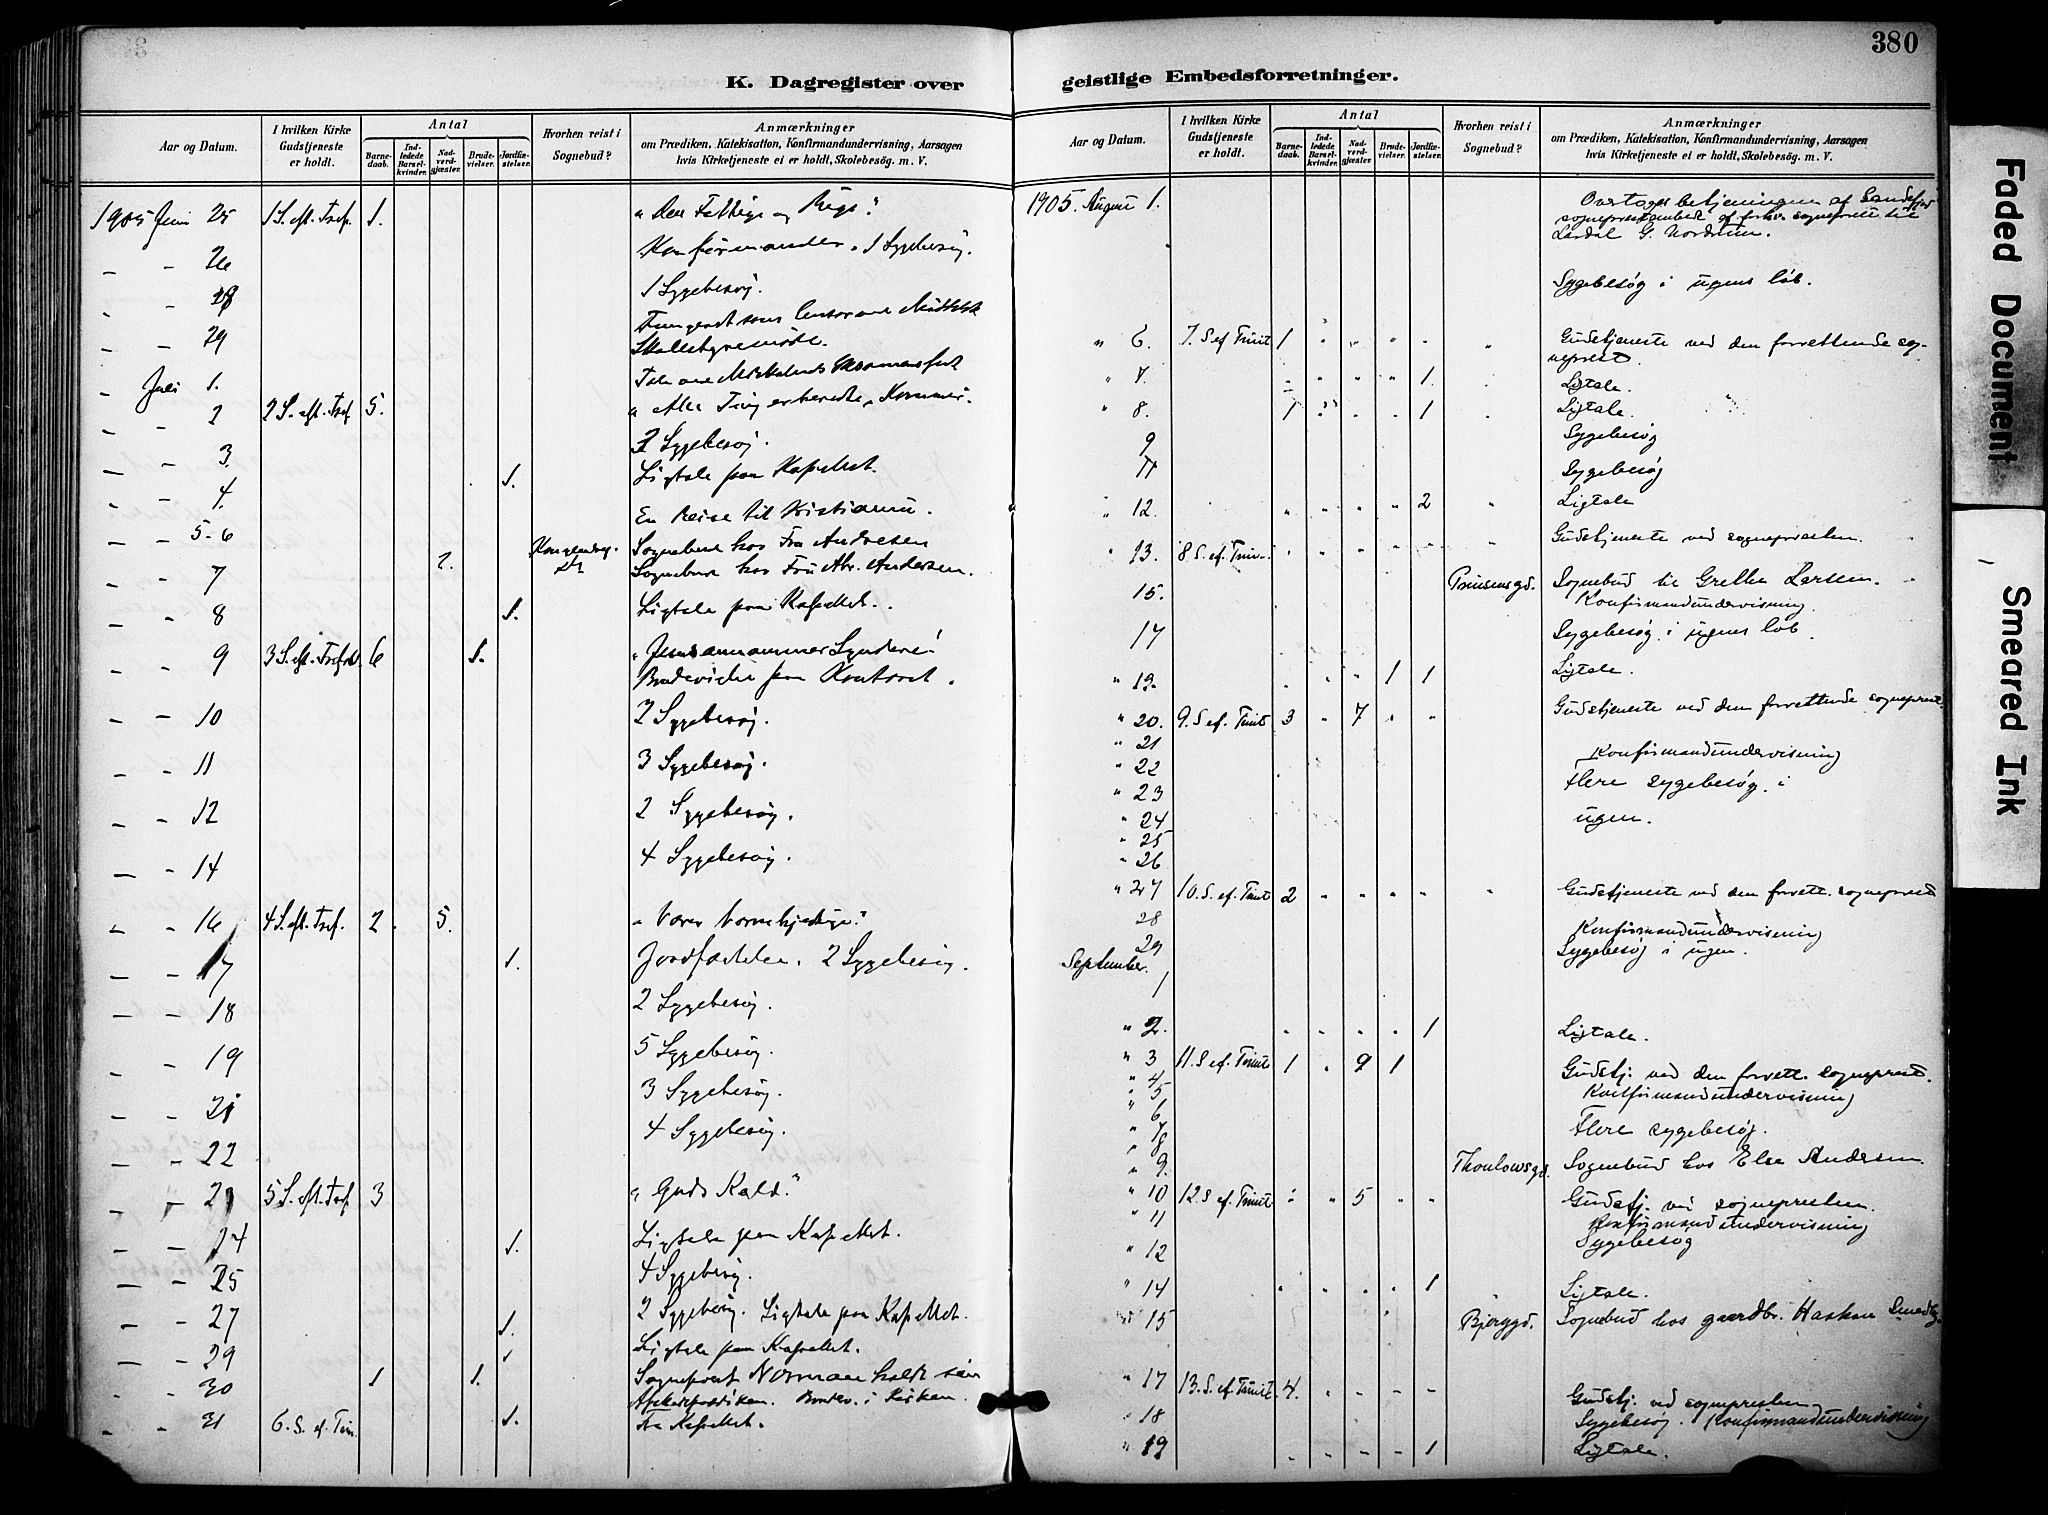 380
K. Dagregister over
geistlige Embedsforretninger.
Aar og Datum.
I hvilken Kirke Gudstjeneste er holdt.
Antal
Barnedaab.
Indledede Barselkvinder.
Nadverdgjæster.
Brudevielser.
Jordfæstelser.
Hvorhen reist i Sognebud?
Anmærkninger
om Prædiken, Katekisation, Konfirmandundervisning, Aarsagen
hvis Kirketjeneste ei er holdt, Skolebesøg. m. V.
1905 Juni 25 1 S. eft. Tref. 1. "Den Fattige og Rige."
— — 26 Konfirmander. 1 Sygebesøg.
— — 28 1 Sygebesøg.
— — 29
Skolestyremøde.
— Juli 1.
— — 2 2 S. eft. Tref. 5. "Alle Ting er beredte, Kommer."
— — 3. 2 Sygebesøg.
— — 4. 1. Ligtale paa Kapellet.
— — 5-6 En Reise til Kristiania.
Sognebud hos Fru Andresen
— — 7 2. Sognebud hos Fru Abr. Andersen.
— — 8 1. Ligtale paa Kapellet.
— — 9 3 S. eft. Trefold. 6 1. "Jesus annammer Syndere"
Brudevielse paa Kontoret.
— — 10 2 Sygebesøg.
— — 11 3 Sygebesøg.
— — 12 2 Sygebesøg.
— — 14 4 Sygebesøg.
— — 16 4 S. eft. Tref. 2 5.
— — 17 1. Jordfæstelse. 2 Sygebesøg.
— — 18 2 Sygebesøg.
— — 19 5 Sygebesøg.
— — 21 3 Sygebesøg.
— — 22 4 Sygebesøg.
— — 23 5 S. eft. Tref. 3 "Guds Kald."
— — 24 1. Ligtale paa Kapellet.
— — 25 4 Sygebesøg.
— — 27 1. 2 Sygebesøg. Ligtale paa Kapellet.
— — 29 1 Ligtale paa Kapellet.
— — 30 1 1. Sogneprest Norman holdt sin
Afskedsprædiken. Brudev. i Kirken.
— — 31 6. S. ef. Trin. 1. Fra Kapellet.
Aar og Datum.
I hvilken Kirke Gudstjeneste er holdt.
Antal
Barnedaab.
Indledede Barselkvinder.
Nadverdgjæster.
Brudevielser.
Jordfæstelser.
Hvorhen reist i Sognebud?
Anmærkninger
om Prædiken, Katekisation, Konfirmandundervisning, Aarsagen
hvis Kirketjeneste ei er holdt, Skolebesøg. m. V.
1905. August 1. Overtages betjeningen af Sandefjord
sogneprestembede af forhv. sogneprest til
Lardal G. Nordrum.
Sygebesøg i ugens løb.
" 6. 7. S ef Trinit 1 Gudstjeneste ved den forrettende sog-
neprest.
" 7. 1. Ligtale.
" 8. 1 1 Ligtale.
9 Sygebesøg
11 Sygebesøg
" 12. 2 Ligtale
" 13. 8 S. ef. Trin. Gudstjeneste ved sognepresten.
15. Prinsensgd. Sognebud til Grethe Larsen.
Konfirmandundervisning.
17 Sygebesøg i ugens løb.
" 19. 1 1 Ligtale.
" 20. 9. S ef. Trinit 3 7 Gudstjeneste ved den forrettende sogneprest.
" 21
" 22 Konfirmandundervisning
" 23 Flere sygebesøg i
" 24 ugen.
" 25
" 26
" 27 10. S. ef. Trinit 2 Gudstjeneste ved den forrett. sogneprest
28 Konfirmandundervisning
29 Sygebesøg i ugen.
September. 1
" 2. 1 Ligtale.
" 3 11. S ef. Trinit 1 9 1 Gudstj. ved den forrett. sogneprest.
" 4
" 5 Konfirmandundervisning
" 6
" 7 Flere sygebesøg.
" 8
" 9. Thoulowsgd. Sognebud hos Else Andersen.
" 10 12. S ef. Trinit 5 Gudstj. ved sognepresten.
" 11 Konfirmandundervisning
" 12 Sygebesøg
" 14 1 Ligtale.
" 15 Bjerggd. Sognebud hos gaardbr. Haakon
" 17 13. S. ef. Trinit. 4. Gudstj. ved sognepresten
" 18 Sygebesøg. Konfirmandundervisning
" 19 1 Ligtale.
Faded Document
Smeared Ink